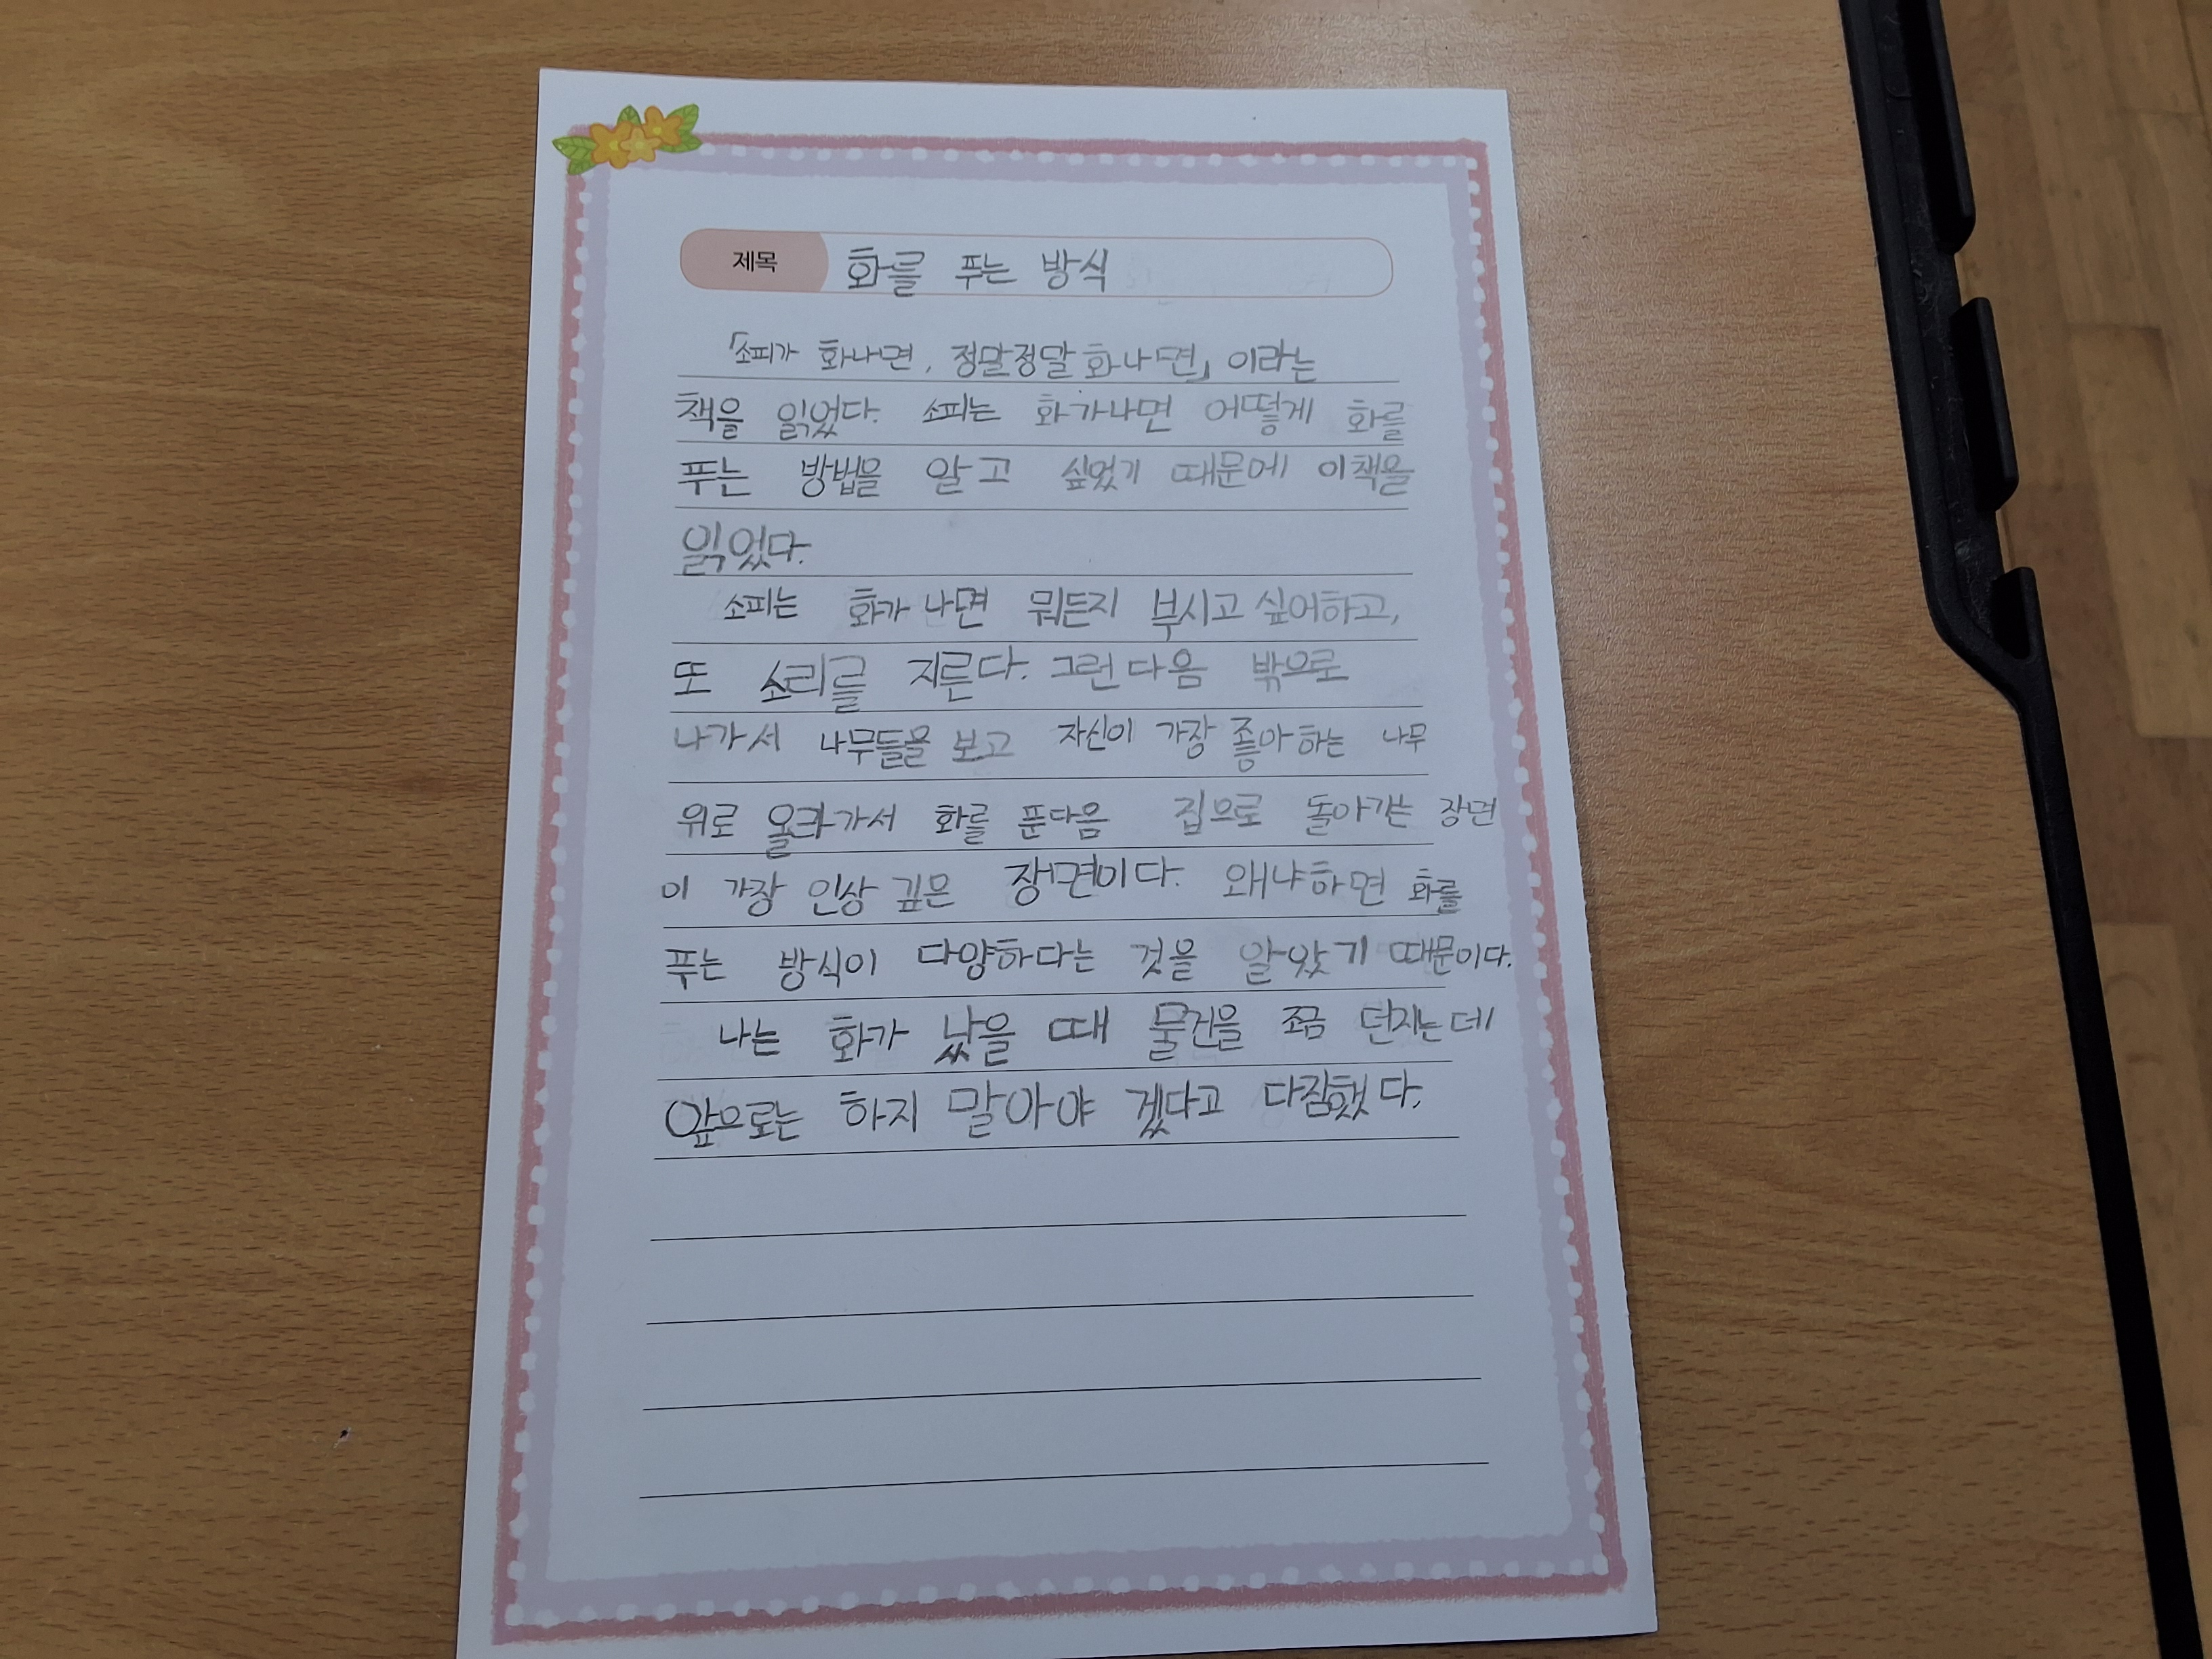 제목 화를 푸는 방식
「소피가 화나면, 정말정말 화나면」 이라는
책을 읽었다. 소피는 화가나면 어떻게 화를
푸는 방법을 알고 싶었기 때문에 이책을
읽었다.
소피는 화가 나면 뭐든지 부시고 싶어하고,
또 소리를 지른다. 그런다음 밖으로
나가서 나무들을 보고 자신이 가장 좋아하는 나무
위로 올라가서 화를 푼다음 집으로 돌아가는 장면
이 가장 인상 깊은 장면이다. 왜냐하면 화를
푸는 방식이 다양하다는 것을 알았기 때문이다.
나는 화가 났을 때 물건을 조금 던지는데
앞으로는 하지 말아야 겠다고 다짐했다.